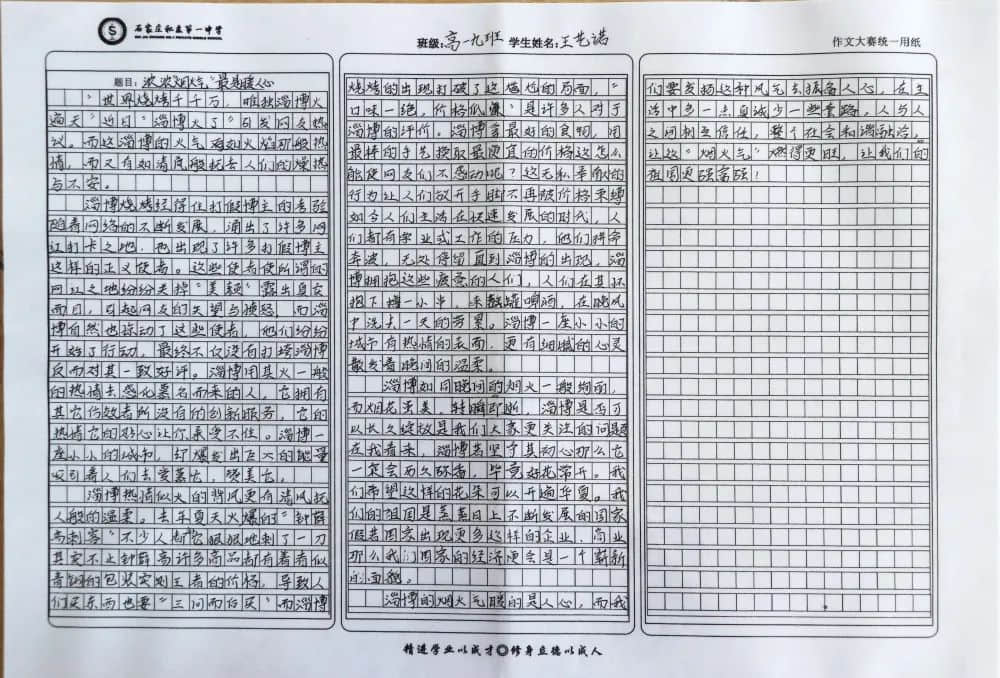 石家庄私立第一中学
班级:高一九班 学生姓名:王艺诺
作文大赛统一用纸
题目:浓浓“烟火气”最是暖人心
“世界烧烤千千万,唯独淄博火
遍天”近日“淄博火了”引发网友热
议。而这淄博的火气 宛如火焰那般热
情,而又有如清风般抚去人们的燥热
与不安。
淄博烧烤经得住打假博主的考验
随着网络的不断发展,涌出了许多网
红打卡之地,也出现了许多打假博主
这样的正义使者。这些使者使所谓的
网红之地纷纷丢掉“美颜”露出真实
面目,引起网友的失望与愤怒,而淄
博自然也惊动了这些使者,他们纷纷
开始了行动,最终不仅没有打垮淄博
反而对其一致好评。淄博用其火一般
的热情去感化慕名而来的人。它拥有
其它仿效者所没有的创新服务,它的
热情它的好心让你承受不住。淄博一
座小小的城市,却爆发出巨大的能量
吸引着人们去爱慕它,赞美它。
淄博热情似火的背风更有清风抚
人般的温柔。去年夏天火爆的“钟薛
高刺客”不少人都它狠狠地刺了一刀
其实不止钟薛高许多商品都有着看似
青铜的包装实则王者的价格,导致人
们买东西也要“三问而后买”而淄博
烧烤的出现打破了这尴尬的局面,“
口味一绝,价格低廉”是许多人对于
淄博的评价。淄博拿最好的食物,用
最棒的手艺换取最便宜的价格这怎么
能使网友们不感动呢?这无私奉献的
行为让人们放开手脚不再被价格束缚
如今人们生活在快速发展的时代,人
们都有学业或工作的压力,他们拼命
奔波,无处停留直到淄博的出现,淄
博拥抱这些疲惫的人们,人们在其怀
抱下撸一小串,来数罐啤酒,在晚风
中洗去一天的劳累。淄博一座小小的
城市有热情的表面,更有细腻的心灵
散发着晚间的温柔。
淄博如同晚间的烟火一般绚丽,
而烟花虽美,转瞬即断,淄博是否可
以长久绽放是我们大家更关注的问题
在我看来,淄博若坚守其初心那么它
一定会历久弥香,毕竟好花常开。我
们希望这样的花朵可以开遍华夏。我
们的祖国是蒸蒸日上不断发展的国家
假若国家出现更多这样的企业,商业
那么我们国家的经济便会是一个崭新
的面貌。
淄博的烟火气暖的是人心,而我
们要发扬这种风气去振奋人心,在生
活中多一点真诚少一些套路,人与人
之间相互信任,整个社会和谐融洽,
让这“烟火气”燃得更旺,让我们的
祖国更强富强!
精进学业以成才 修身立德以成人